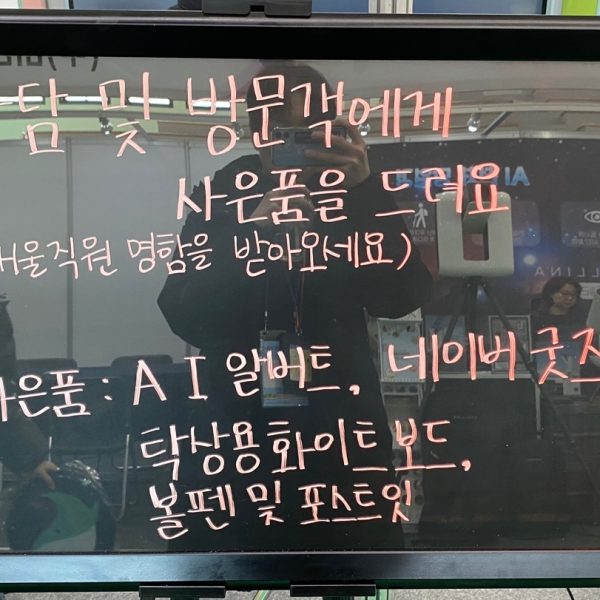 담 및 방문객에게
사은품을 드려요
서울직원 명함을 받아오세요)
사은품 : A I 알버트, 네이버 굿즈
탁상용 화이트보드,
볼펜 및 포스트잇
LLINA